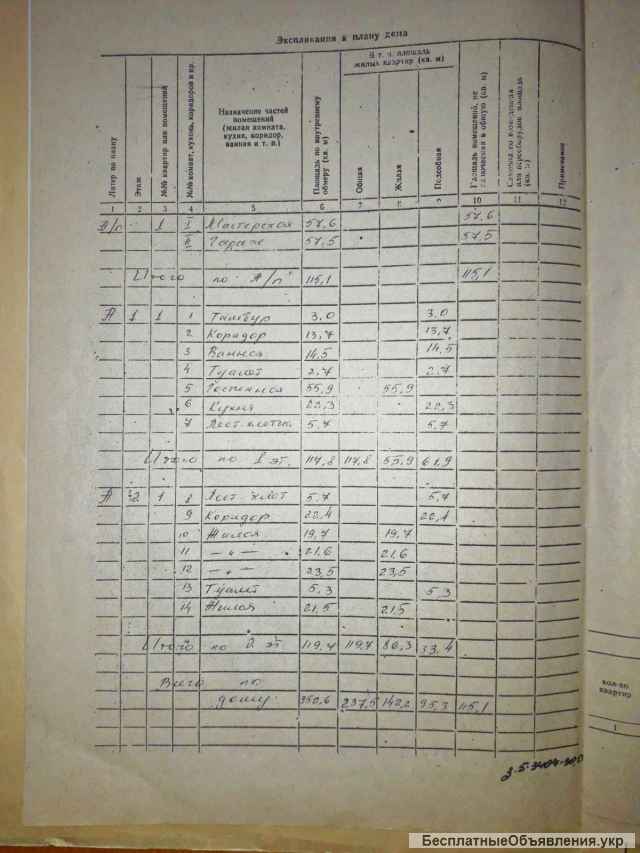 Экспликация к плану дома
Литер по плану | Этаж | №№ квартир или помещений | №№ комнат, кухонь, коридоров и пр. | Назначение частей помещений (жилая комната, кухня, коридор, ванная и т. п.) | Площадь по внутреннему обмеру (кв. м) | В т. ч. площадь жилых квартир (кв. м) | Общая | Жилая | Подсобная | Площадь помещений, не включенная в общую (кв. м) | Самовольно возведенная или переоборудов. площадь (кв. м) | Примечание
1 2 3 4 5 6 7 8 9 10 11 12
А/п 1 I Мастерская 57,6 57,6
II Гараж 57,5 57,5
Итого по А/п 115,1 115,1
А 1 1 1 Тамбур 3.0 3.0
2 Коридор 13,7 13,7
3 Ванная 14,5 14,5
4 Туалет 2,7 2,7
5 Гостинная 55,9 55,9
6 Кухня 22,3 22,3
7 Лест. клетк. 5,7 5,7
Итого по 1 эт. 117,8 117,8 55,9 61,9
А 2 1 8 Лест. клет 5,7 5,7
9 Коридор 22,4 22,4
10 Жилая 19,7 19,7
11 — „ — 21,6 21,6
12 — „ — 23,5 23,5
13 Туалет 5,3 5,3
14 Жилая 21,5 21,5
Итого по 2 эт. 119,7 119,7 86,3 33,4
Всего по
дому: 352,6 237,5 142,2 95,3 115,1
1
БесплатныеОбъявления.укр